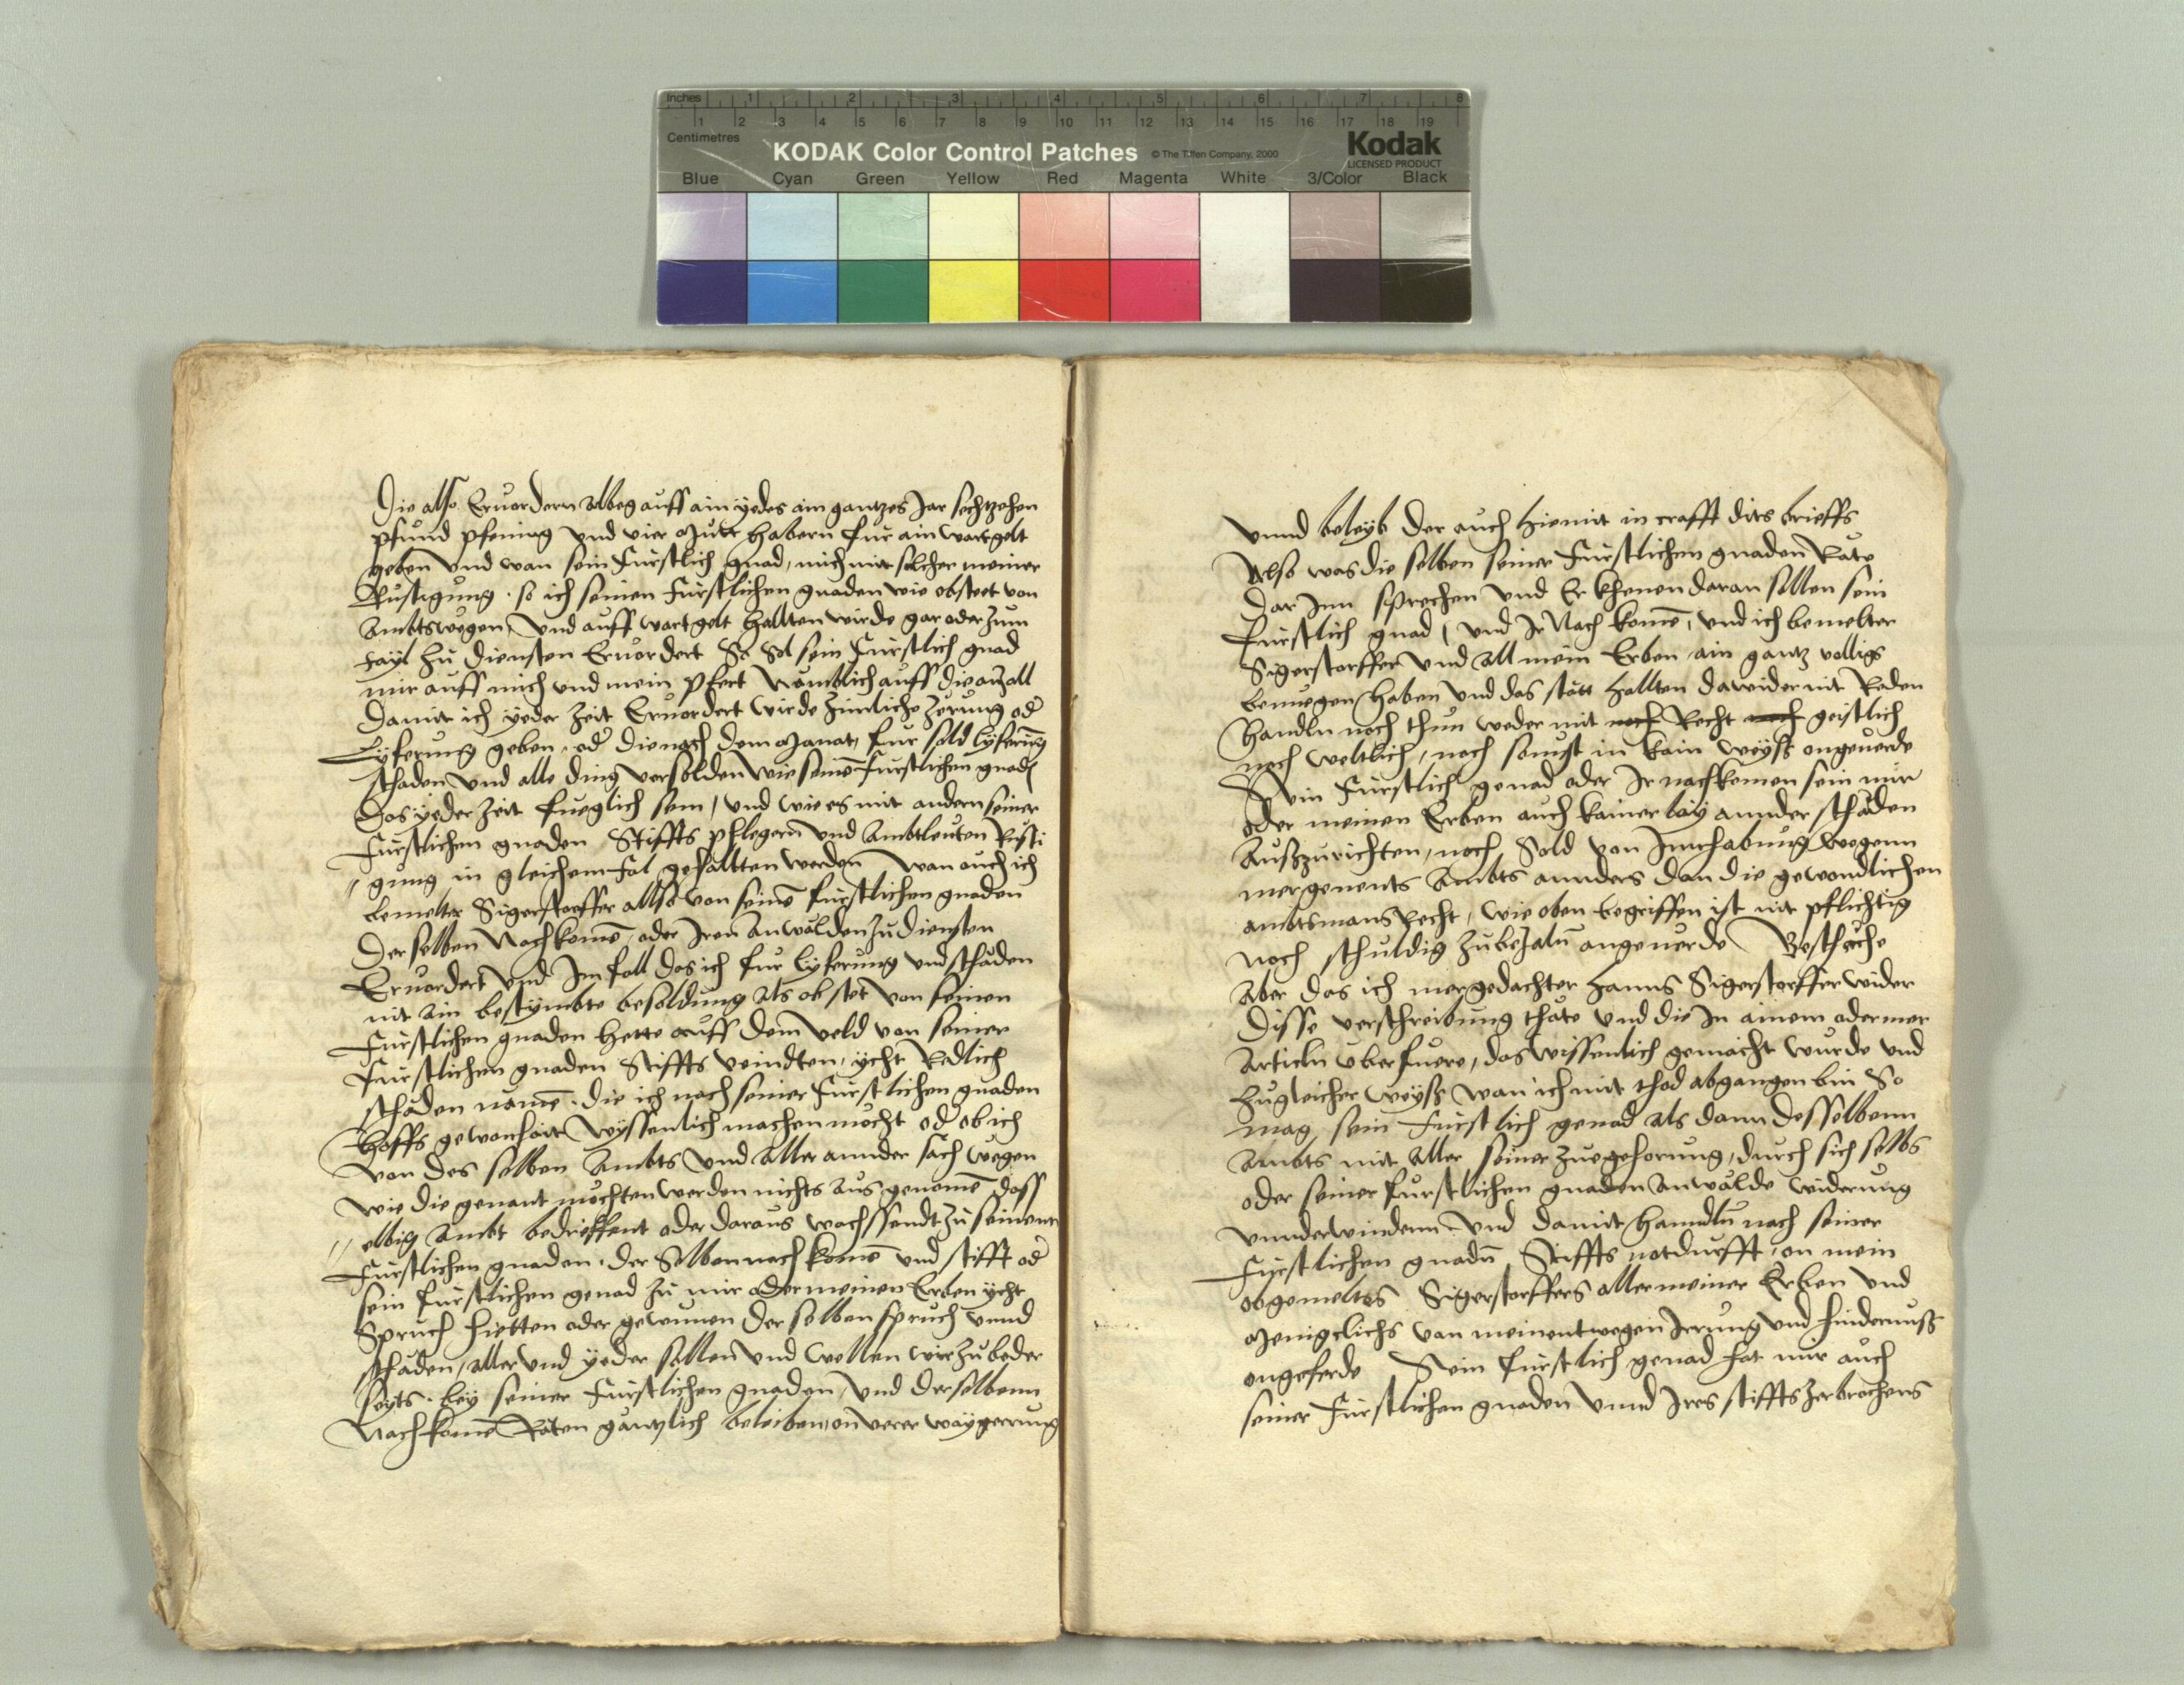 Inches 1 2 3 4 5 6 7 8
1 2 3 4 5 6 7 8 9 10 11 12 13 14 15 16 17 18 19
Centimetres
KODAK Color Control Patches © The Tiffen Company, 2000 Kodak
LICENSED PRODUCT
Blue Cyan Green Yellow Red Magenta White 3/Color Black
Die also Eruordern albeg auff ain yedes ain gantzes Jar sechtzehen
pfund pfening vnd vier Mutt habern fur ain wartgelt
geben vnd wan sein Furstlich gnad, mich mit solcher meiner
Rustigung. so ich seinen Furstlichen gnaden wie obsteet von
Ambtswegen, vnd auff wartgelt hallten wirde gar oder zum
tayl zu diensten Eruordert So Sol sein Furstlich gnad
mir auff mich vnd mein pfert Namblich auff die anzall
Damit ich yeder Zeit Eruordert wirde Zimliche Zerung od
Lyferung geben, od die nach dem Monat, fur sold lyferung
schaden vnd alle ding versolden wie seinen furstlichen gnad
Das yeder Zeit fueglich sein, vnd wie es mit andern seiner
Furstlichen gnaden Stiffts pflegern vnd Ambtleuten Rusti
gung in gleichem fal gehallten werden wan auch ich
bemelter Sigerstorffer allso von seinen furstlichen gnaden
Derselben Nachkomen, oder Iren Anwälden Zu diensten
Eruordert vnd Im fall das ich fur lyferung vnd schäden
nit ain bestymbte besoldung als ob stet von seinen
Furstlichen gnaden hette auff dem veld von seiner
Furstlichen gnaden Stiffts veindten, ycht Redlich
schäden name. die ich nach seiner Furstlichen gnaden
Hoffs gewonhait wyssenlich machen möcht od ob ich
von des selben Ambts vnd Aller annder sach wegen
wie die genant möchten werden nichts Aus genomen dass
elbig Ambt bedreffent oder daraus wachssendt zu seinenn
Furstlichen gnaden. der Selben nachkomen vnd stifft od
sein furstlichen genad zu mir oder meinen Erben ycht
Spruch hietten oder gewunen der selben spruch vnnd
schäden, aller vnd yeder sollen vnd wellen wir zu beder
seyts. bey seiner Furstlichen gnaden vnd derselbenn
Nachkomen Räten gäntzlich beleiben, on verer waygerung
vnnd beleyb der auch hiemit in crafft dits brieffs
Also was die selben seiner Furstlichen gnaden Räte
Dar Inn sprechen vnd Erkhenen daran sollen sein
furstlich gnad, vnd Ir Nachkomen, vnd ich bemelter
Sigerstorffer vnd all mein Erben ain gantz volligs
benuegen haben vnd das stätt hallten dawider nit Reden
Handln noch thun weder mit noch Recht noch geistlich
noch weltlich, noch sunst in kain weyss ongeuerde
Sein Furstlich genad oder Ir nachkomen sein mir
oder meinen Erben auch kainerlay annder schäden
Ausszurichten, noch Sold von Innhabung wegenn
mergenents Ambts annders dan die gewondlichen
ambtsmans Recht, wie oben begriffen ist nit pflichtig
noch schuldig zu bezaln angeuerde Beschache
Aber das ich mergedachter Hanns Sigerstorffer wider
Disse verschreibung thäte vnd die In ainem oder mer
Articln vberfuere, das wissenlich gemacht wurde vnd
Zugleicher weyss wan ich mit thod abgangen bin So
mag sein Furstlich genad als dann desselbenn
Ambts mit Aller seiner Zuegehorung, durch sich selbs
oder seiner furstlichen gnaden Anwälde widerung
vnnderwindenn vnd damit hanndln nach seiner
Furstlichen gnadn Stiffts notdurfft, on mein
obgemeltes Sigerstorffers aller meiner Erben vnd
Menigclichs von meinentwegen Irrung vnd hindernuss
ongeferde Sein furstlich genad hat mir auch
seiner Furstlichen gnaden vnnd Ires stiffts Zerbrochens